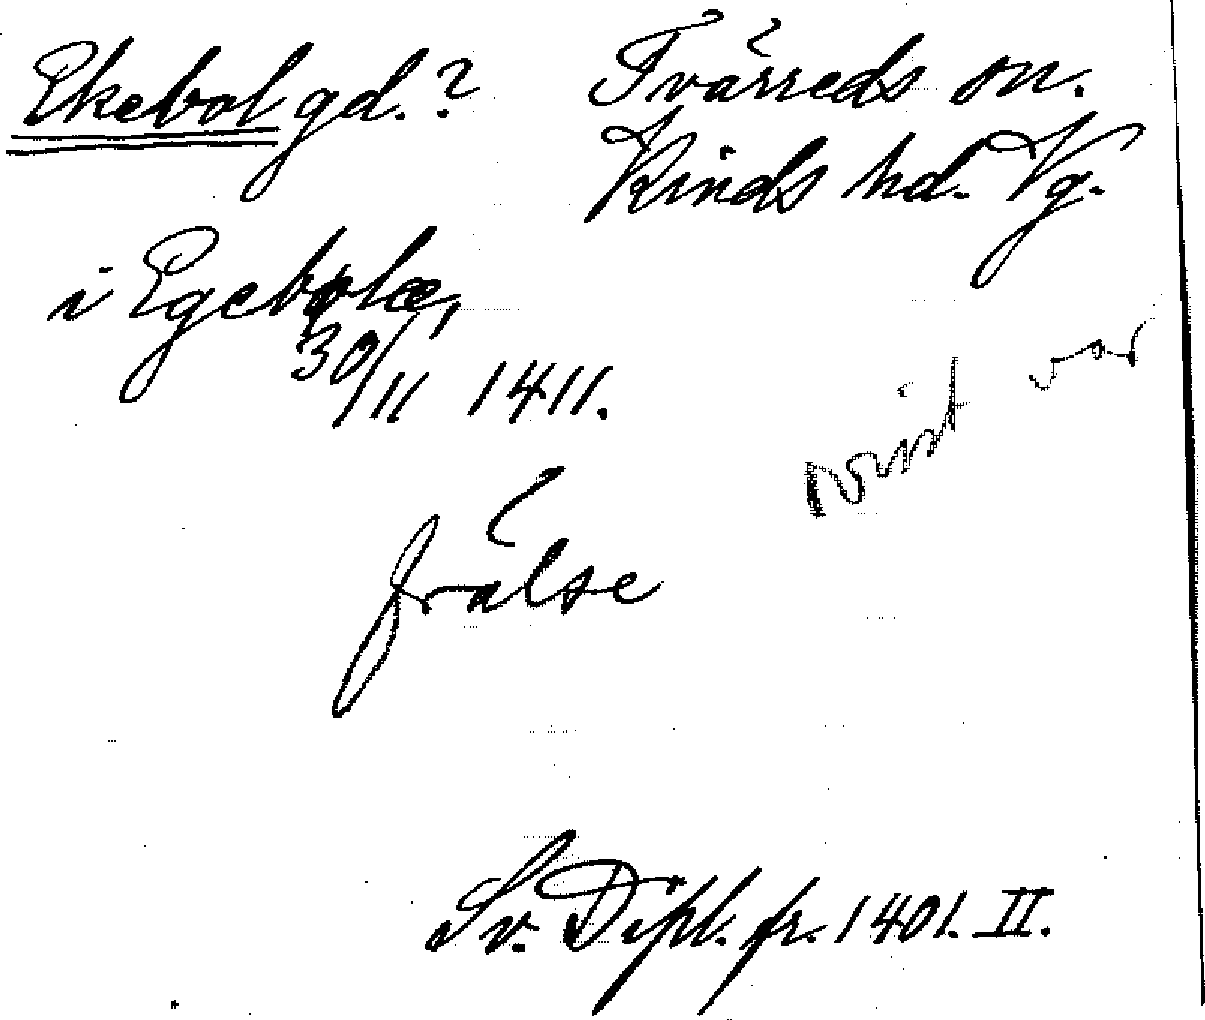 Ekebol gd.? Tvärreds sn.
Kinds hd. Vg.
i Egebolæ,
30/11 1411.
visst var
frälse
Sv. Dipl. fr. 1401. II.